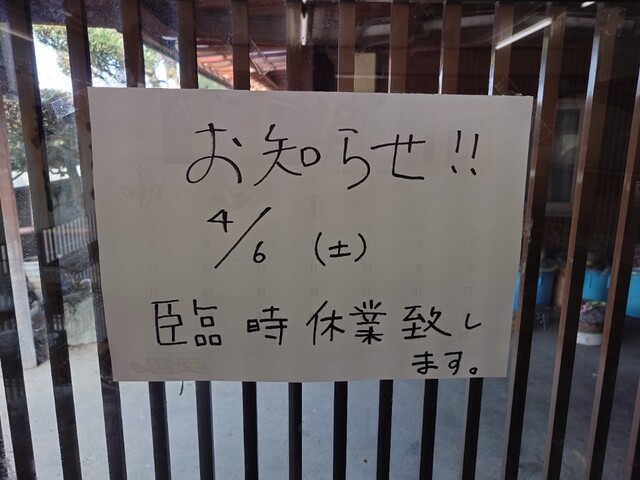 お知らせ!!
4/6 (土)
臨時休業致し
ます。